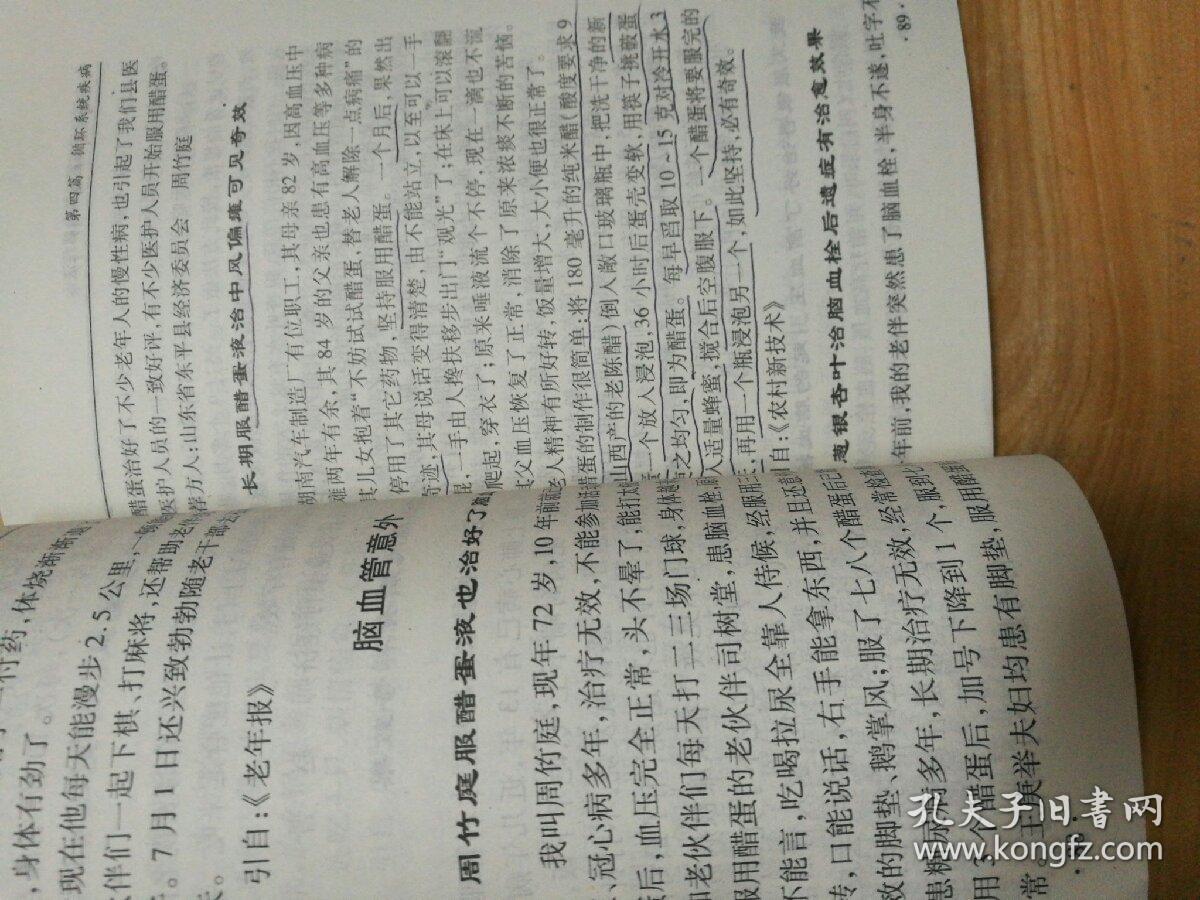 一付药,体烧渐渐
,身体有劲了。
现在他每天能漫步2.5公里,
伙伴们一起下棋、打麻将,还帮助老
。7月1日还兴致勃勃随老干部
引自:《老年报》
脑血管意外
周竹庭服醋蛋液也治好了
我叫周竹庭,现年72岁,10年前
、冠心病多年,治疗无效,不能参加
后,血压完全正常,头不晕了,能打太
和老伙伴们每天打二三场门球,身体
服用醋蛋的老伙伴司树堂,患脑血栓,
不能言,吃喝拉尿全靠人侍候,经服用
转,口能说话,右手能拿东西,并且还
效的脚垫、鹅掌风;服了七八个醋蛋后
患糖尿病多年,长期治疗无效,经常
用3个醋蛋后,加号下降到1个,服到
常。王美举夫妇均患有脚垫,服用醋
第四篇 循环系统疾病
醋蛋治好了不少老年人的慢性病,也引起了我们县医
医护人员的一致好评,有不少医护人员开始服用醋蛋。
荐方人:山东省东平县经济委员会 周竹庭
长期服醋蛋液治中风偏瘫可见奇效
湖南汽车制造厂有位职工,其母亲82岁,因高血压中
瘫两年有余,其84岁的父亲也患有高血压等多种病
其儿女抱着“不妨试试醋蛋,替老人解除一点病痛”的
停用了其它药物,坚持服用醋蛋。一个月后,果然出
奇迹,其母说话变得清楚,由不能站立,以至可以一手
昆,一手由人搀扶移步出门“观光”了;在床上可以滚翻
爬起,穿衣了;原来唾液流个不停,现在一滴也不流
其父血压恢复了正常,消除了原来浓痰不断的苦恼。
老人精神有所好转,饭量增大,大小便也很正常了。
醋蛋的制作很简单:将180毫升的纯米醋(酸度要求9
山西产的老陈醋)倒入敞口玻璃瓶中,把洗干净的新
一个放入浸泡,36小时后蛋壳变软,用筷子挑破蛋
之均匀,即为醋蛋。每早舀取10~15克对冷开水3
入适量蜂蜜,搅合后空腹服下。一个醋蛋将要服完的
,再用一个瓶浸泡另一个,如此坚持,必有奇效。
引自:《农村新技术》
葱根杏叶治脑血栓后遗症有治愈效果
年前,我的老伴突然患了脑血栓,半身不遂,吐字不
·89·
孔夫子旧书网
www.kongfz.com